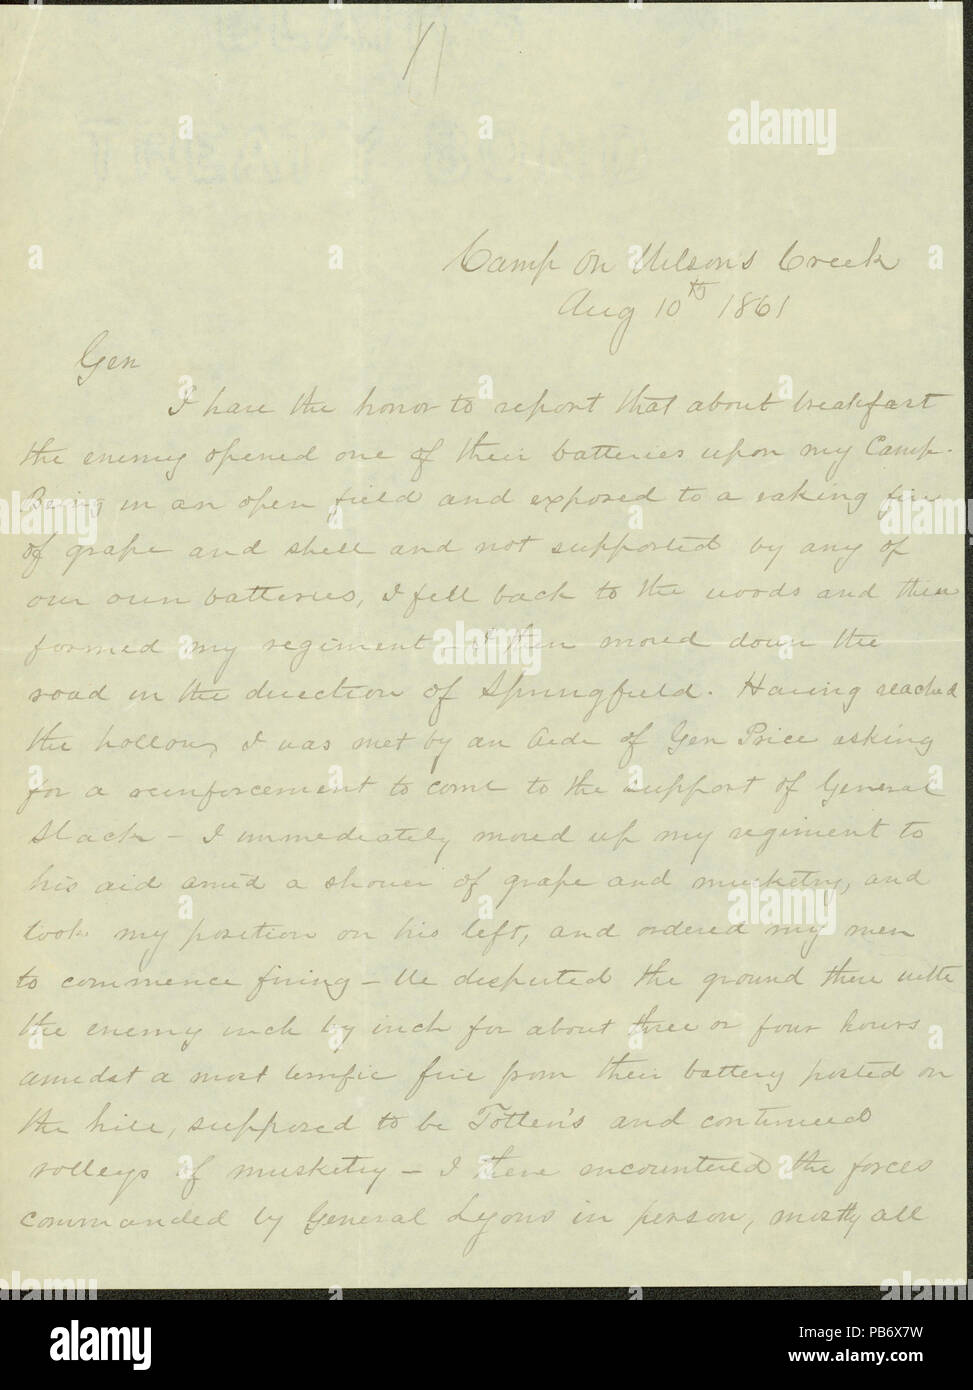 Camp on Wilsons Creek
Aug 10th 1861
Gen
I have the honor to report that about breakfast
the enemy opened one of their batteries upon my Camp.
Being in an open field and exposed to a raking fire
of grape and shell and not supported by any of
our own batteries, I fell back to the woods and then
formed my regiment - I then moved down the
road in the direction of Springfield. Having reached
the hollow, I was met by an Aide of Gen Price asking
for a reinforcement to come to the support of General
Slack - I immediately moved up my regiment to
his aid amid a shower of grape and musketry, and
took my position on his left, and ordered my men
to commence firing - We disputed the ground there with
the enemy inch by inch for about three or four hours
amidst a most terrific fire from their battery posted on
the hill, supposed to be Totten's and continued
volleys of musketry - I here encountered the forces
commanded by General Lyons in person, mostly all
alamy
a
alamy stock photo
PB6X7W
www.alamy.com